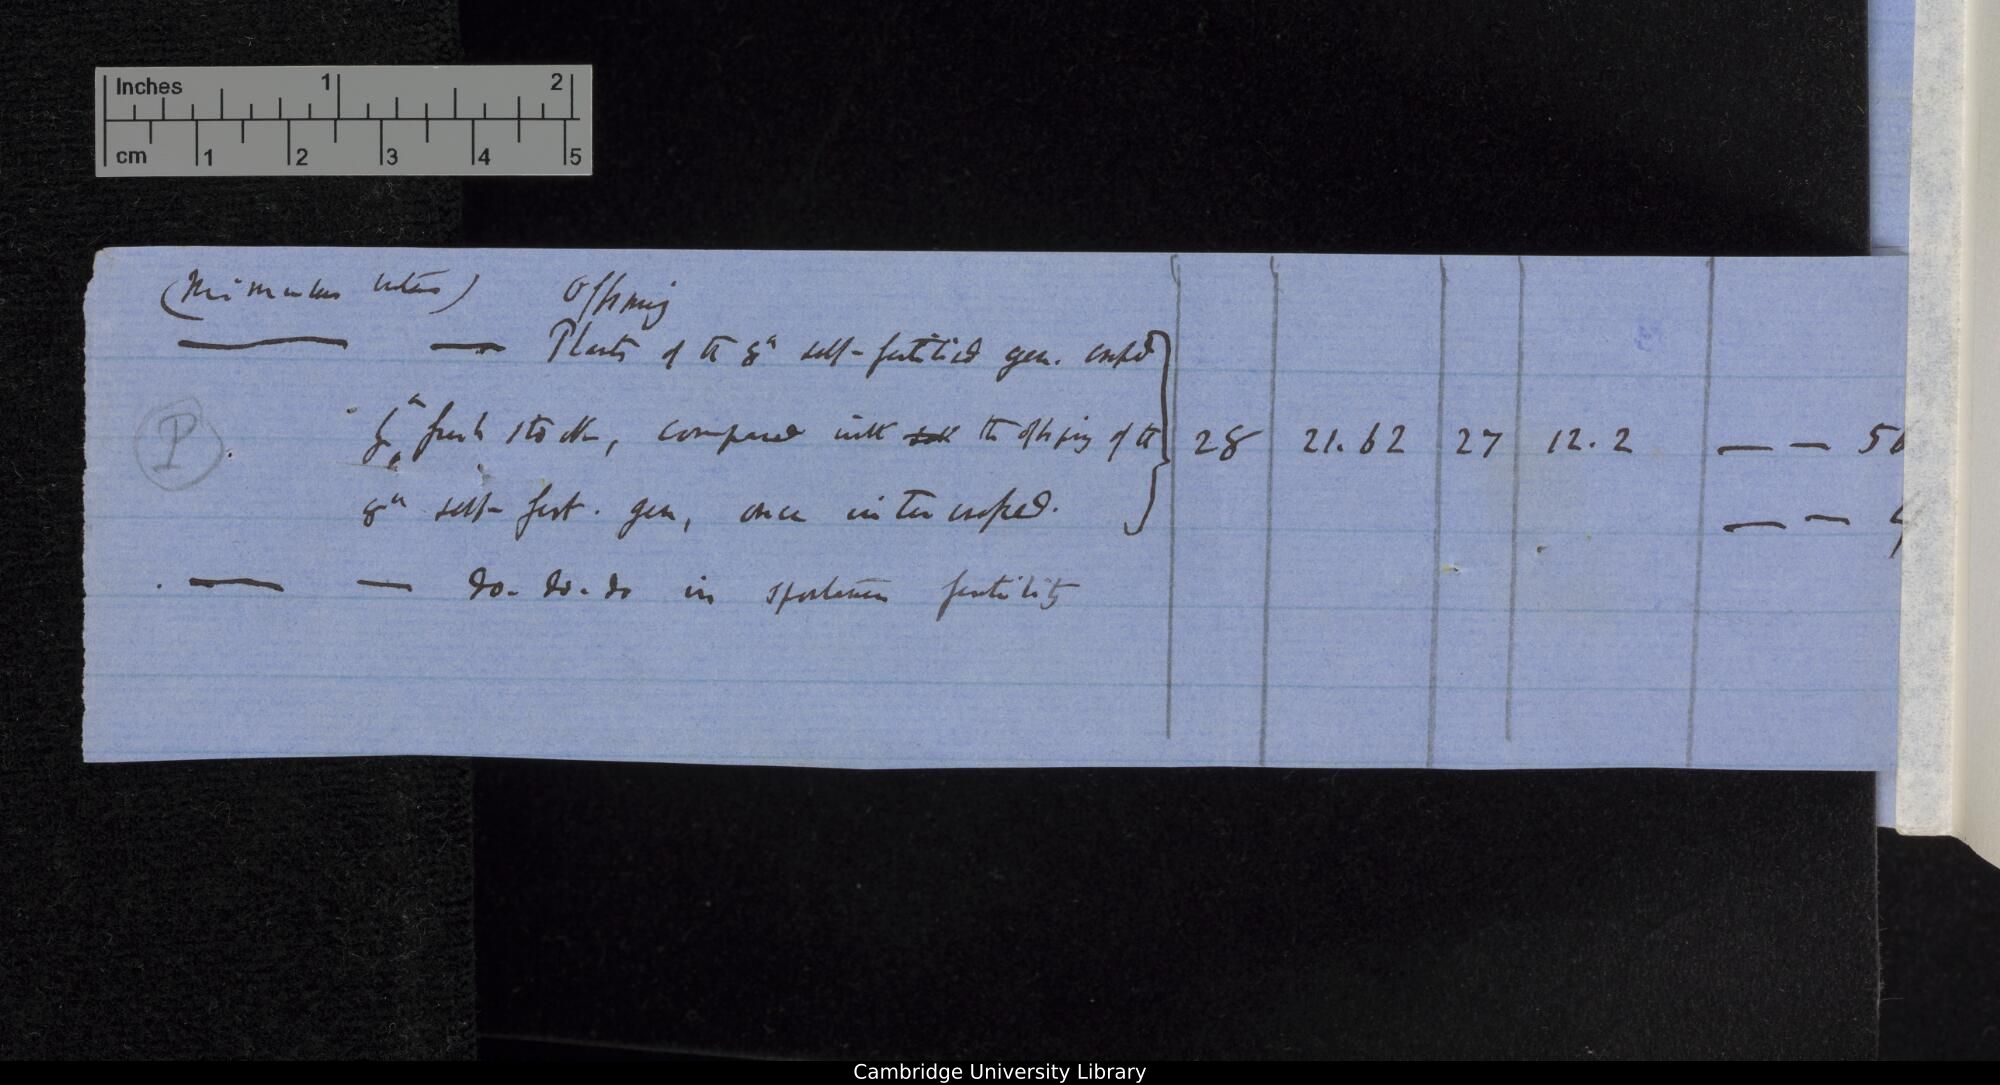 Inches 1 2
cm 1 2 3 4 5
(Mimulus luteus) Offspring
— — Plants of the 8th self-fertilised gen. crossed
P by a fresh stock, compared with the offspring of the 28 21.62 27 12.2 — — 56
8th self-fert. gen, once intercrossed. — —
— — do. do. do in spontaneous fertility
Cambridge University Library